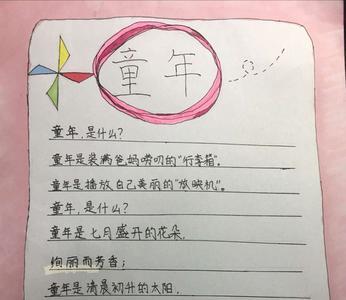 童年
童年,是什么?
童年是装满爸妈唠叨的“行李箱”。
童年是播放自己美丽的“放映机”。
童年,是什么?
童年是七月盛开的花朵,
绚丽而芳香;
童年是清晨初升的太阳,